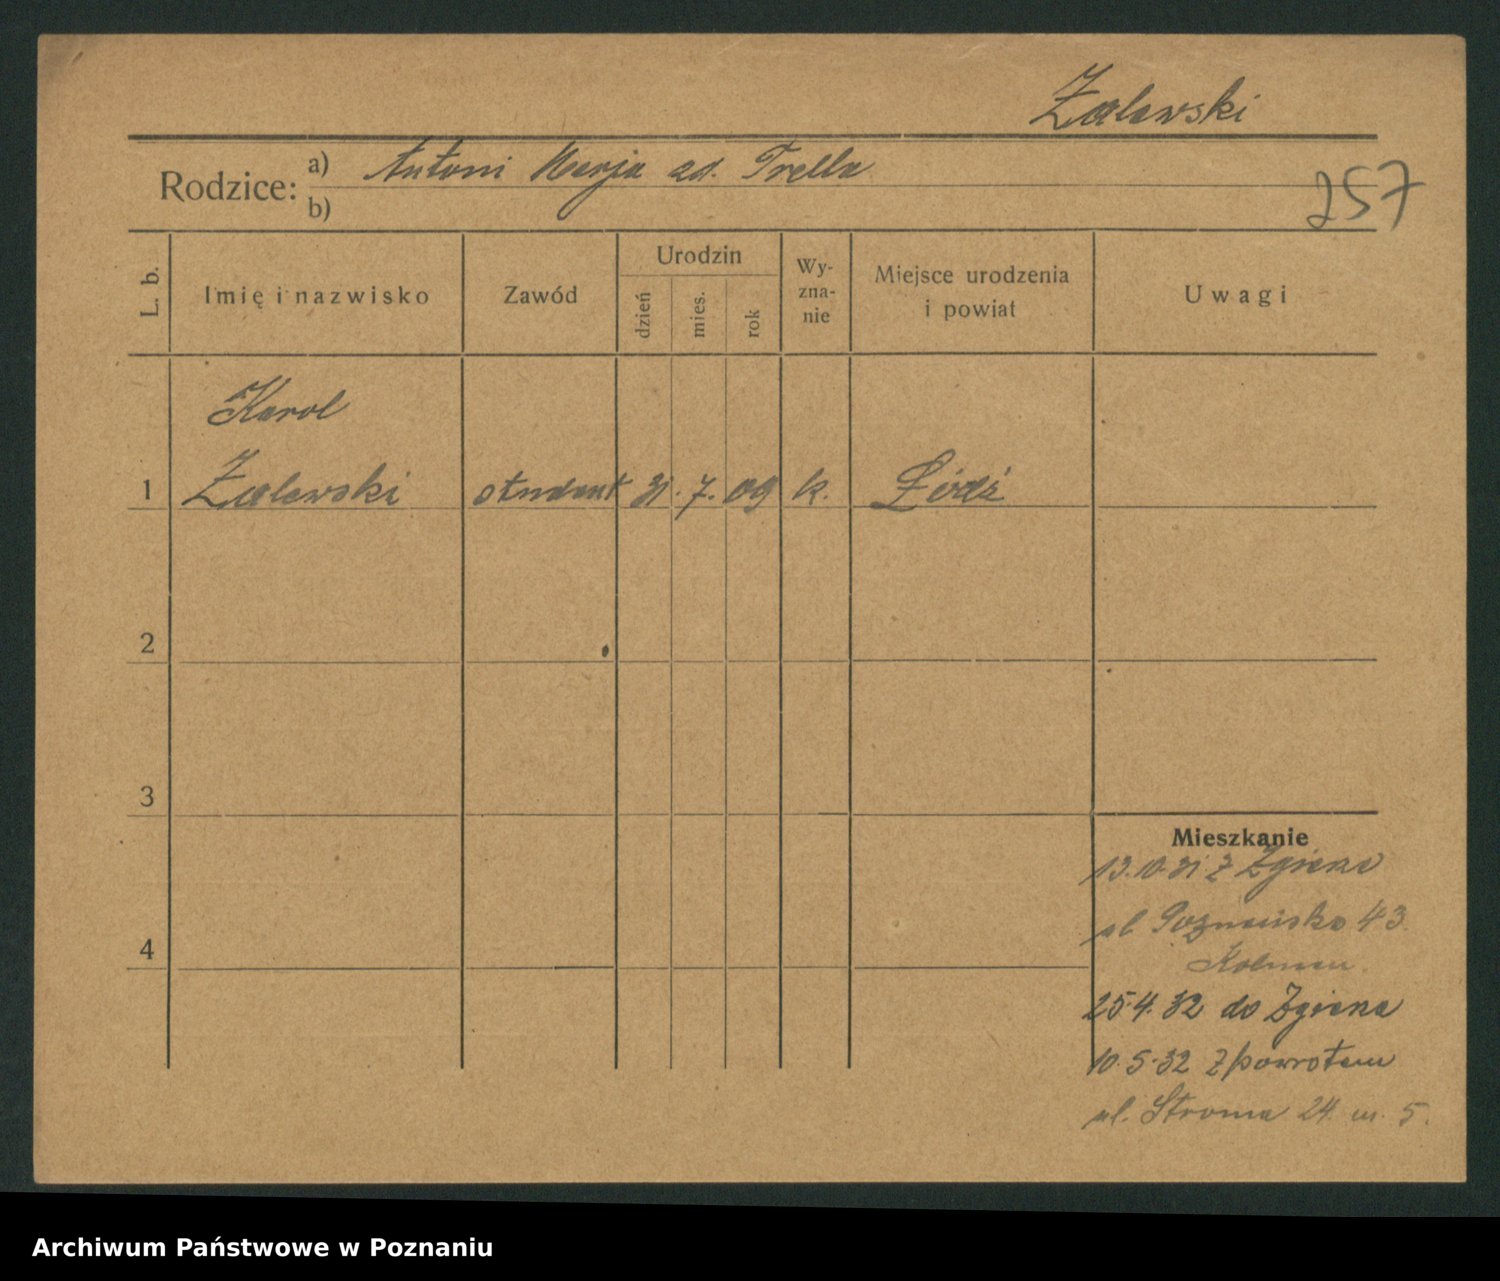 Zalewski
Rodzice: a) Antoni Marja zd. Trella
b)
257
L. b.
Imię i nazwisko
Zawód
Urodzin
dzień
mies.
rok
Wy-
zna-
nie
Miejsce urodzenia
i powiat
Uwagi
Karol
1 Zalewski student 31. 7. 09 k. Łódź
2
3
4
Mieszkanie
13.10.31. z Zgierza
ul. Poznańska 43
25.4.32 do Zgierza
10.5.32 z powrotem
ul. Stroma 24 m. 5.
Archiwum Państwowe w Poznaniu